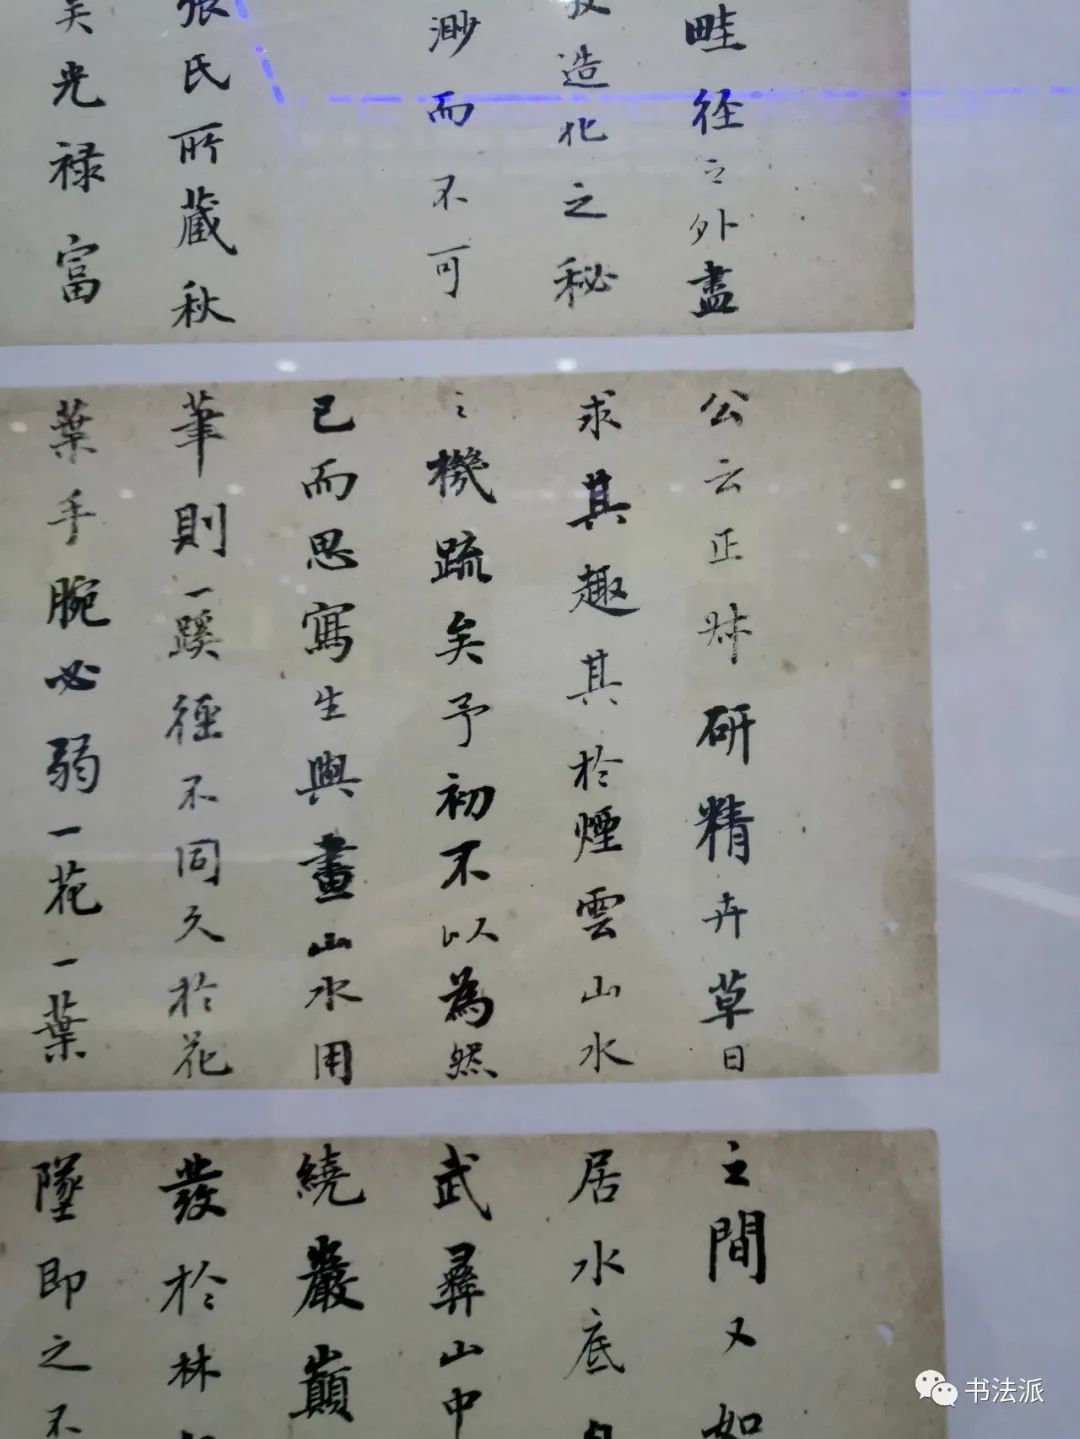 畦徑之外盡
造化之秘
渺而不可
張氏所藏秋
吴光禄富
公云正時研精卉草日
求其趣其於煙雲山水
之機疏矣予初不以為然
已而思寫生與畫山水用
筆則一蹊徑不同久於花
葉手腕必弱一花一葉
之間又如
居水底
武彞山中
繞巖巔
發於林
墜即之不
书法派